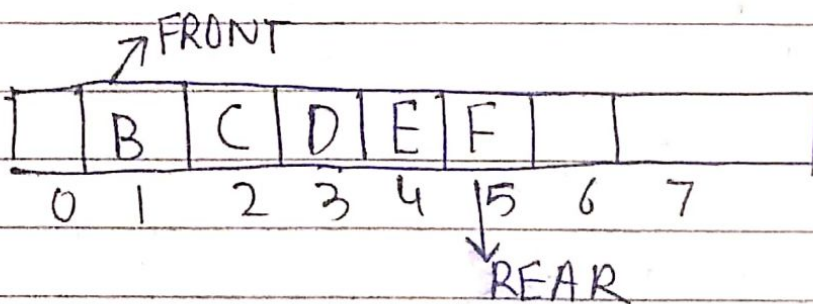 FRONT
B C D E F
0 1 2 3 4 5 6 7
REAR